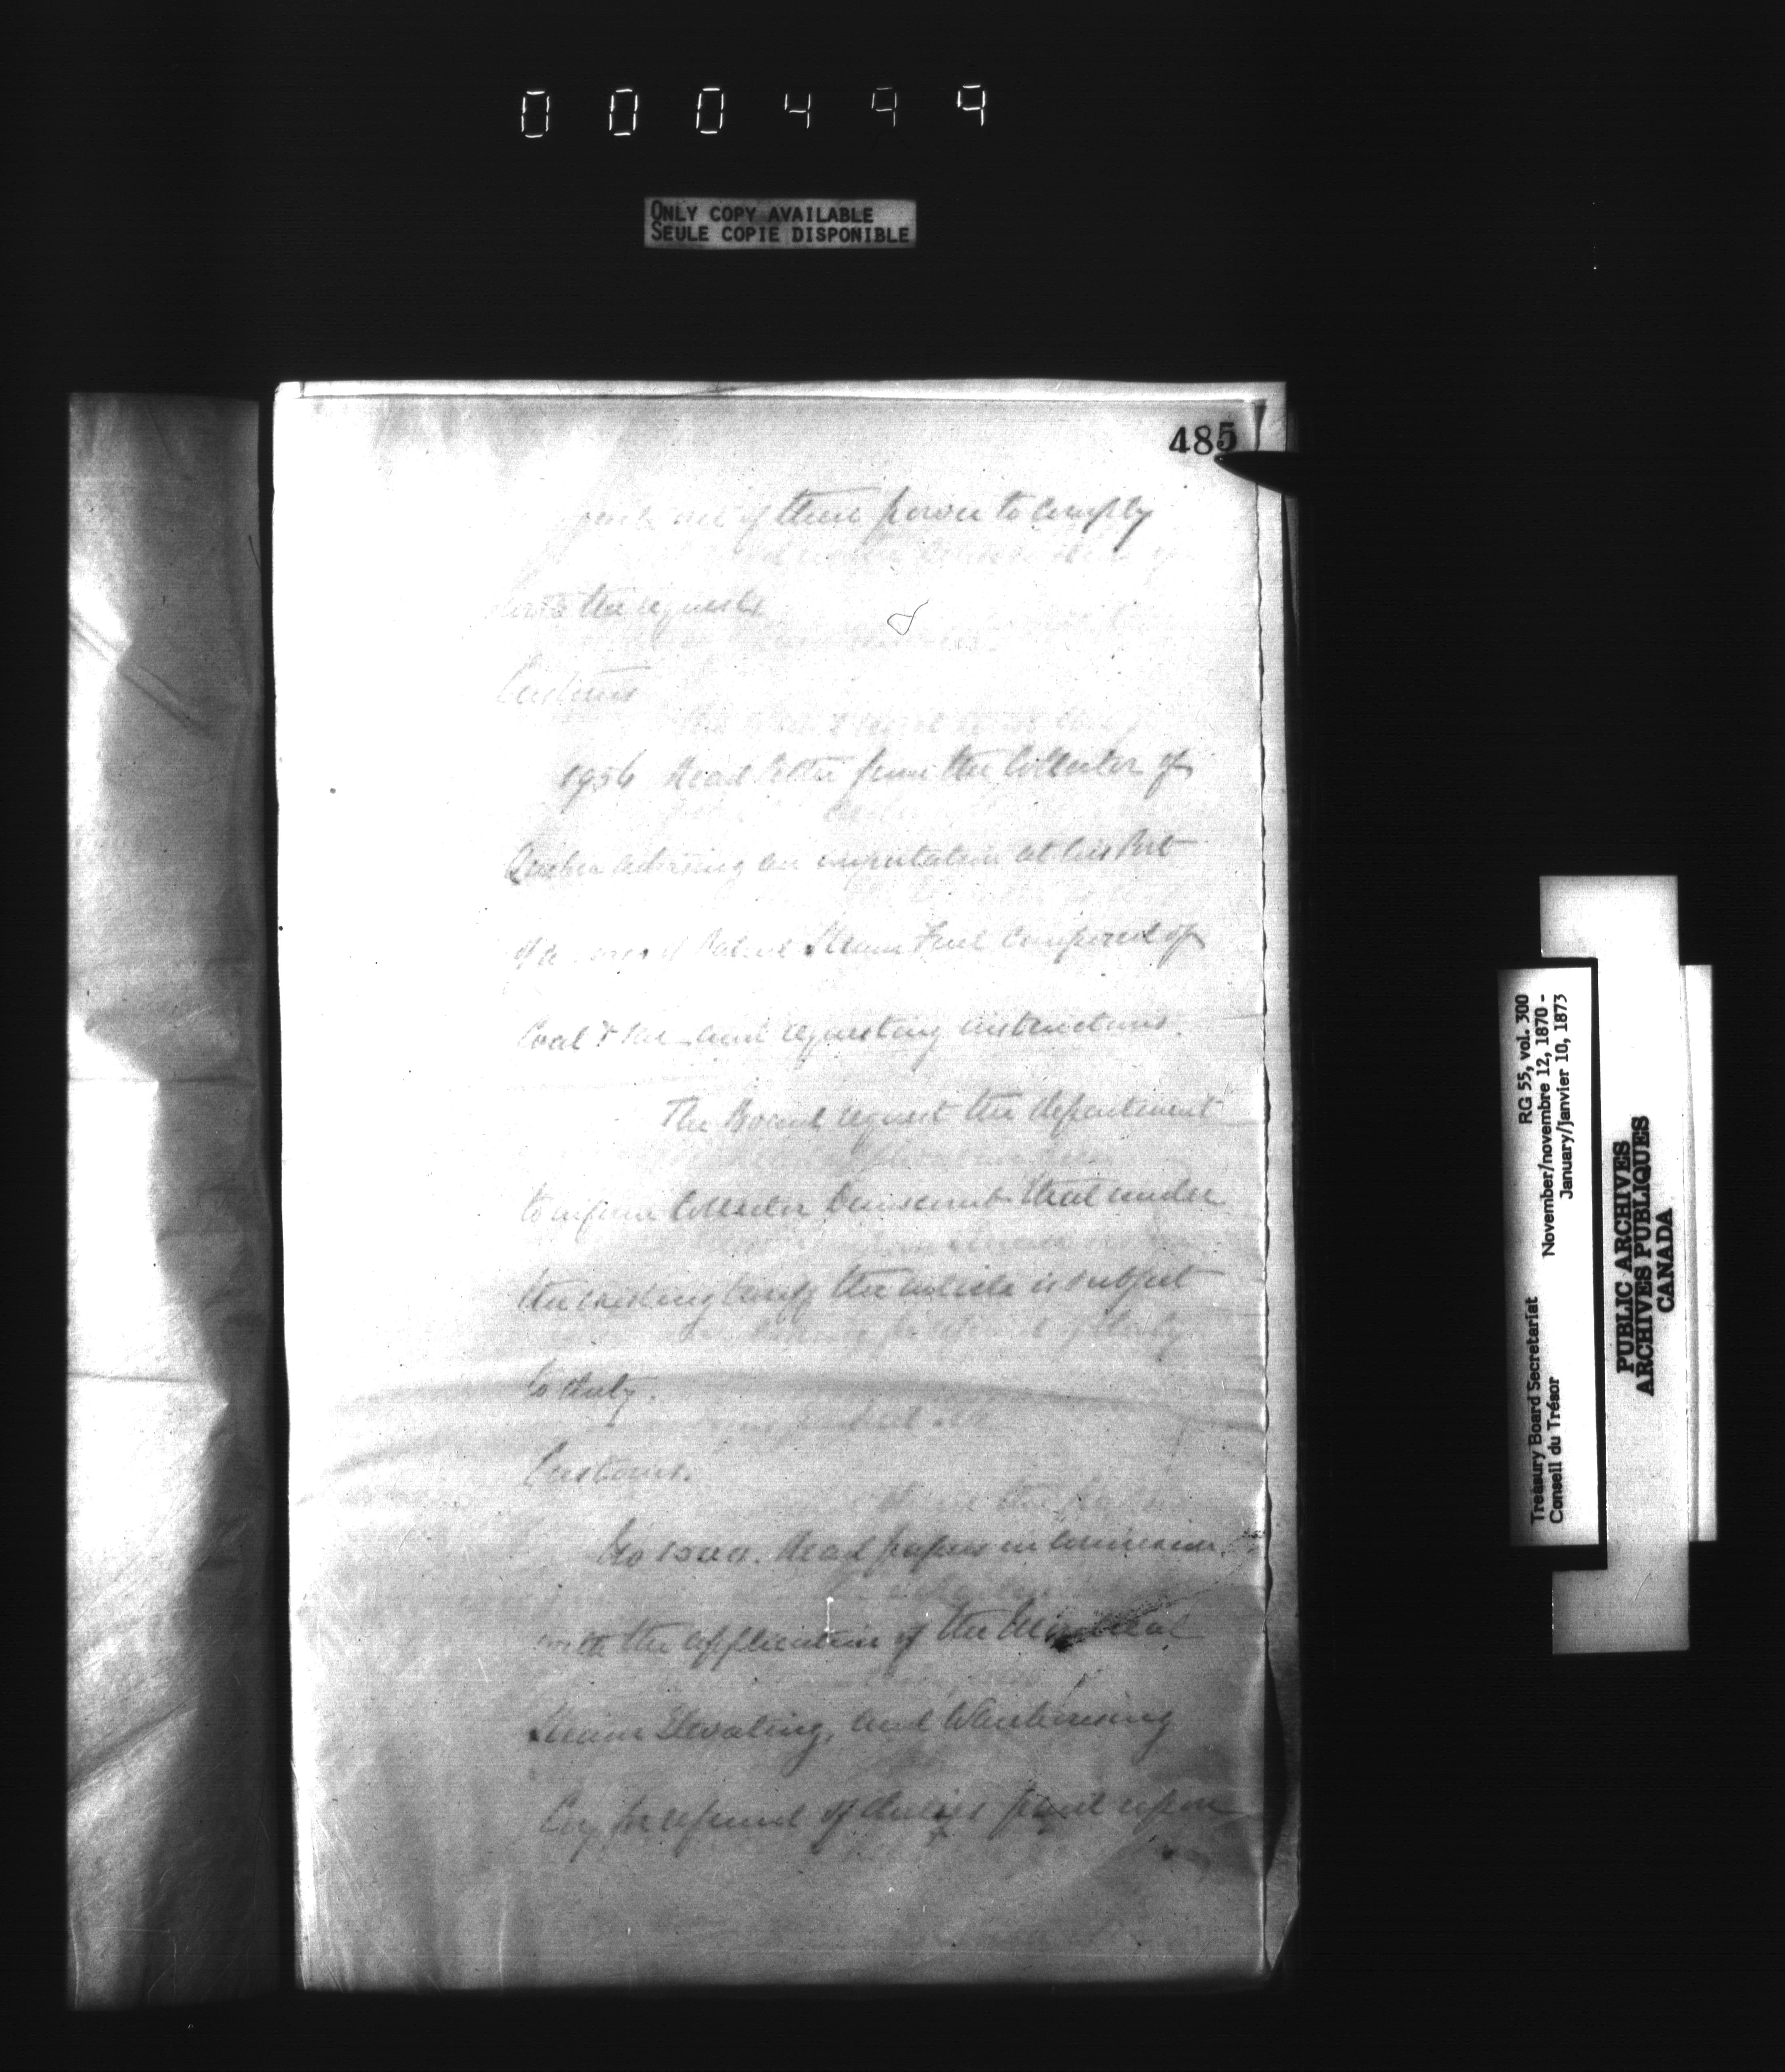 000499
ONLY COPY AVAILABLE
SEULE COPIE DISPONIBLE
485
out of their power to comply
the requests
Customs
1956 Read letter from the Collector of
Quebec advising an importation at his Port
of a of Patent Steam Fuel composed of
Coal & Tar and requesting instructions.
The Board request the department
to inform Collector Dunscomb that under
the existing tariff the article is subject
to duty.
Customs.
No Read papers in
with the application of the Montreal
Steam Elevating, and Warehousing
Coy for refund of duties paid upon
RG 55, vol. 300
Treasury Board Secretariat November/novembre 12, 1870 -
Conseil du Trésor January/janvier 10, 1873
PUBLIC ARCHIVES
ARCHIVES PUBLIQUES
CANADA